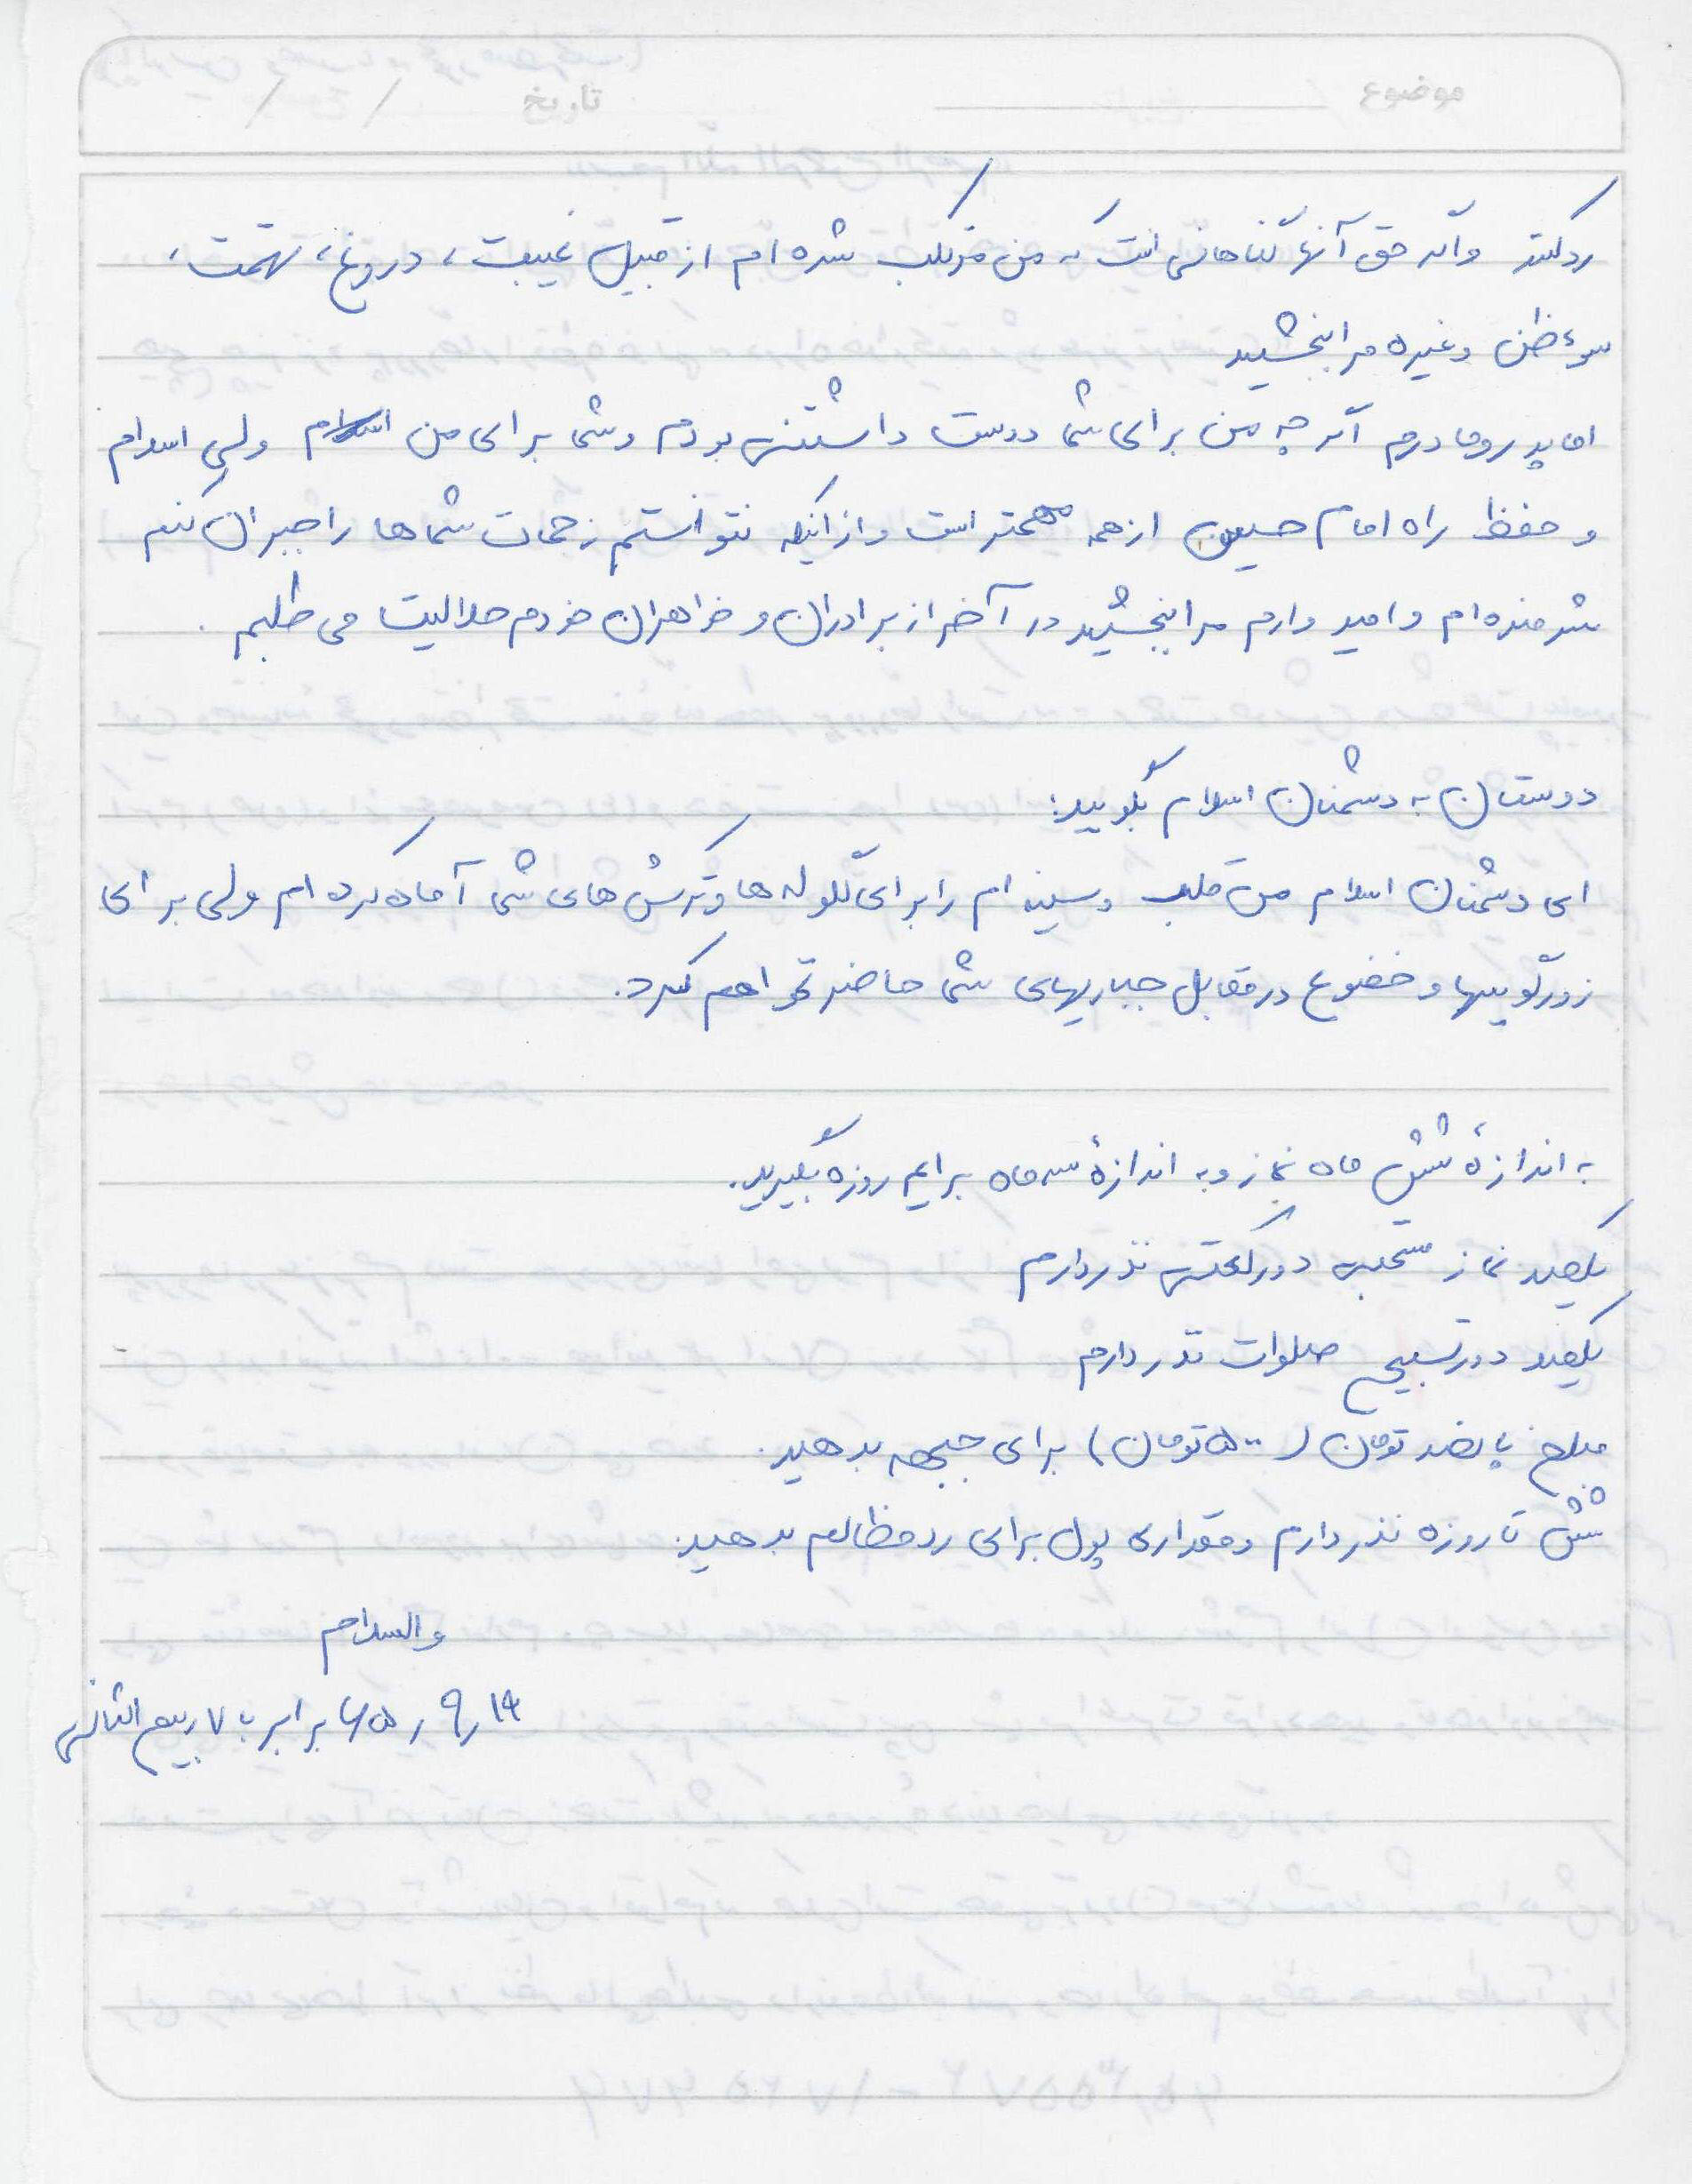 موضوع
تاریخ / /
رد کنید و اگر حق آنها گناهانی است که من مرتکب شده ام از قبیل غیبت، دروغ، تهمت،
سوءظن و غیره مرا ببخشید
اما پدر و مادرم اگر چه من برای شما دوست داشتنی بودم و شما برای من ولی اسلام
و حفظ راه امام حسین از همه مهمتر است و از اینکه نتوانستم زحمات شماها را جبران کنم
شرمنده ام و امید وارم مرا ببخشید در آخر از برادران و خواهران خودم حلالیت می طلبم .
دوستان به دشمنان اسلام بگویید:
ای دشمنان اسلام من قلب و سینه ام را برای گلوله ها و ترکش های شما آماده کرده ام ولی برای
زورگوییها و خضوع در مقابل جباریهای شما حاضر نخواهم کرد.
به اندازهٔ شش ماه نماز و به اندازهٔ سه ماه برایم روزه بگیرید.
یکصد نماز مستحبی دو رکعتی نذر دارم
یکصد دور تسبیح صلوات نذر دارم
مبلغ پانصد تومان (۵۰۰ تومان) برای جبهه بدهید.
شش تا روزه نذر دارم و مقداری پول برای رد مظالم بدهید.
والسلام
۱۹ ر ۹ ر ۶۵ برابر با ۷ ربیع الثانی